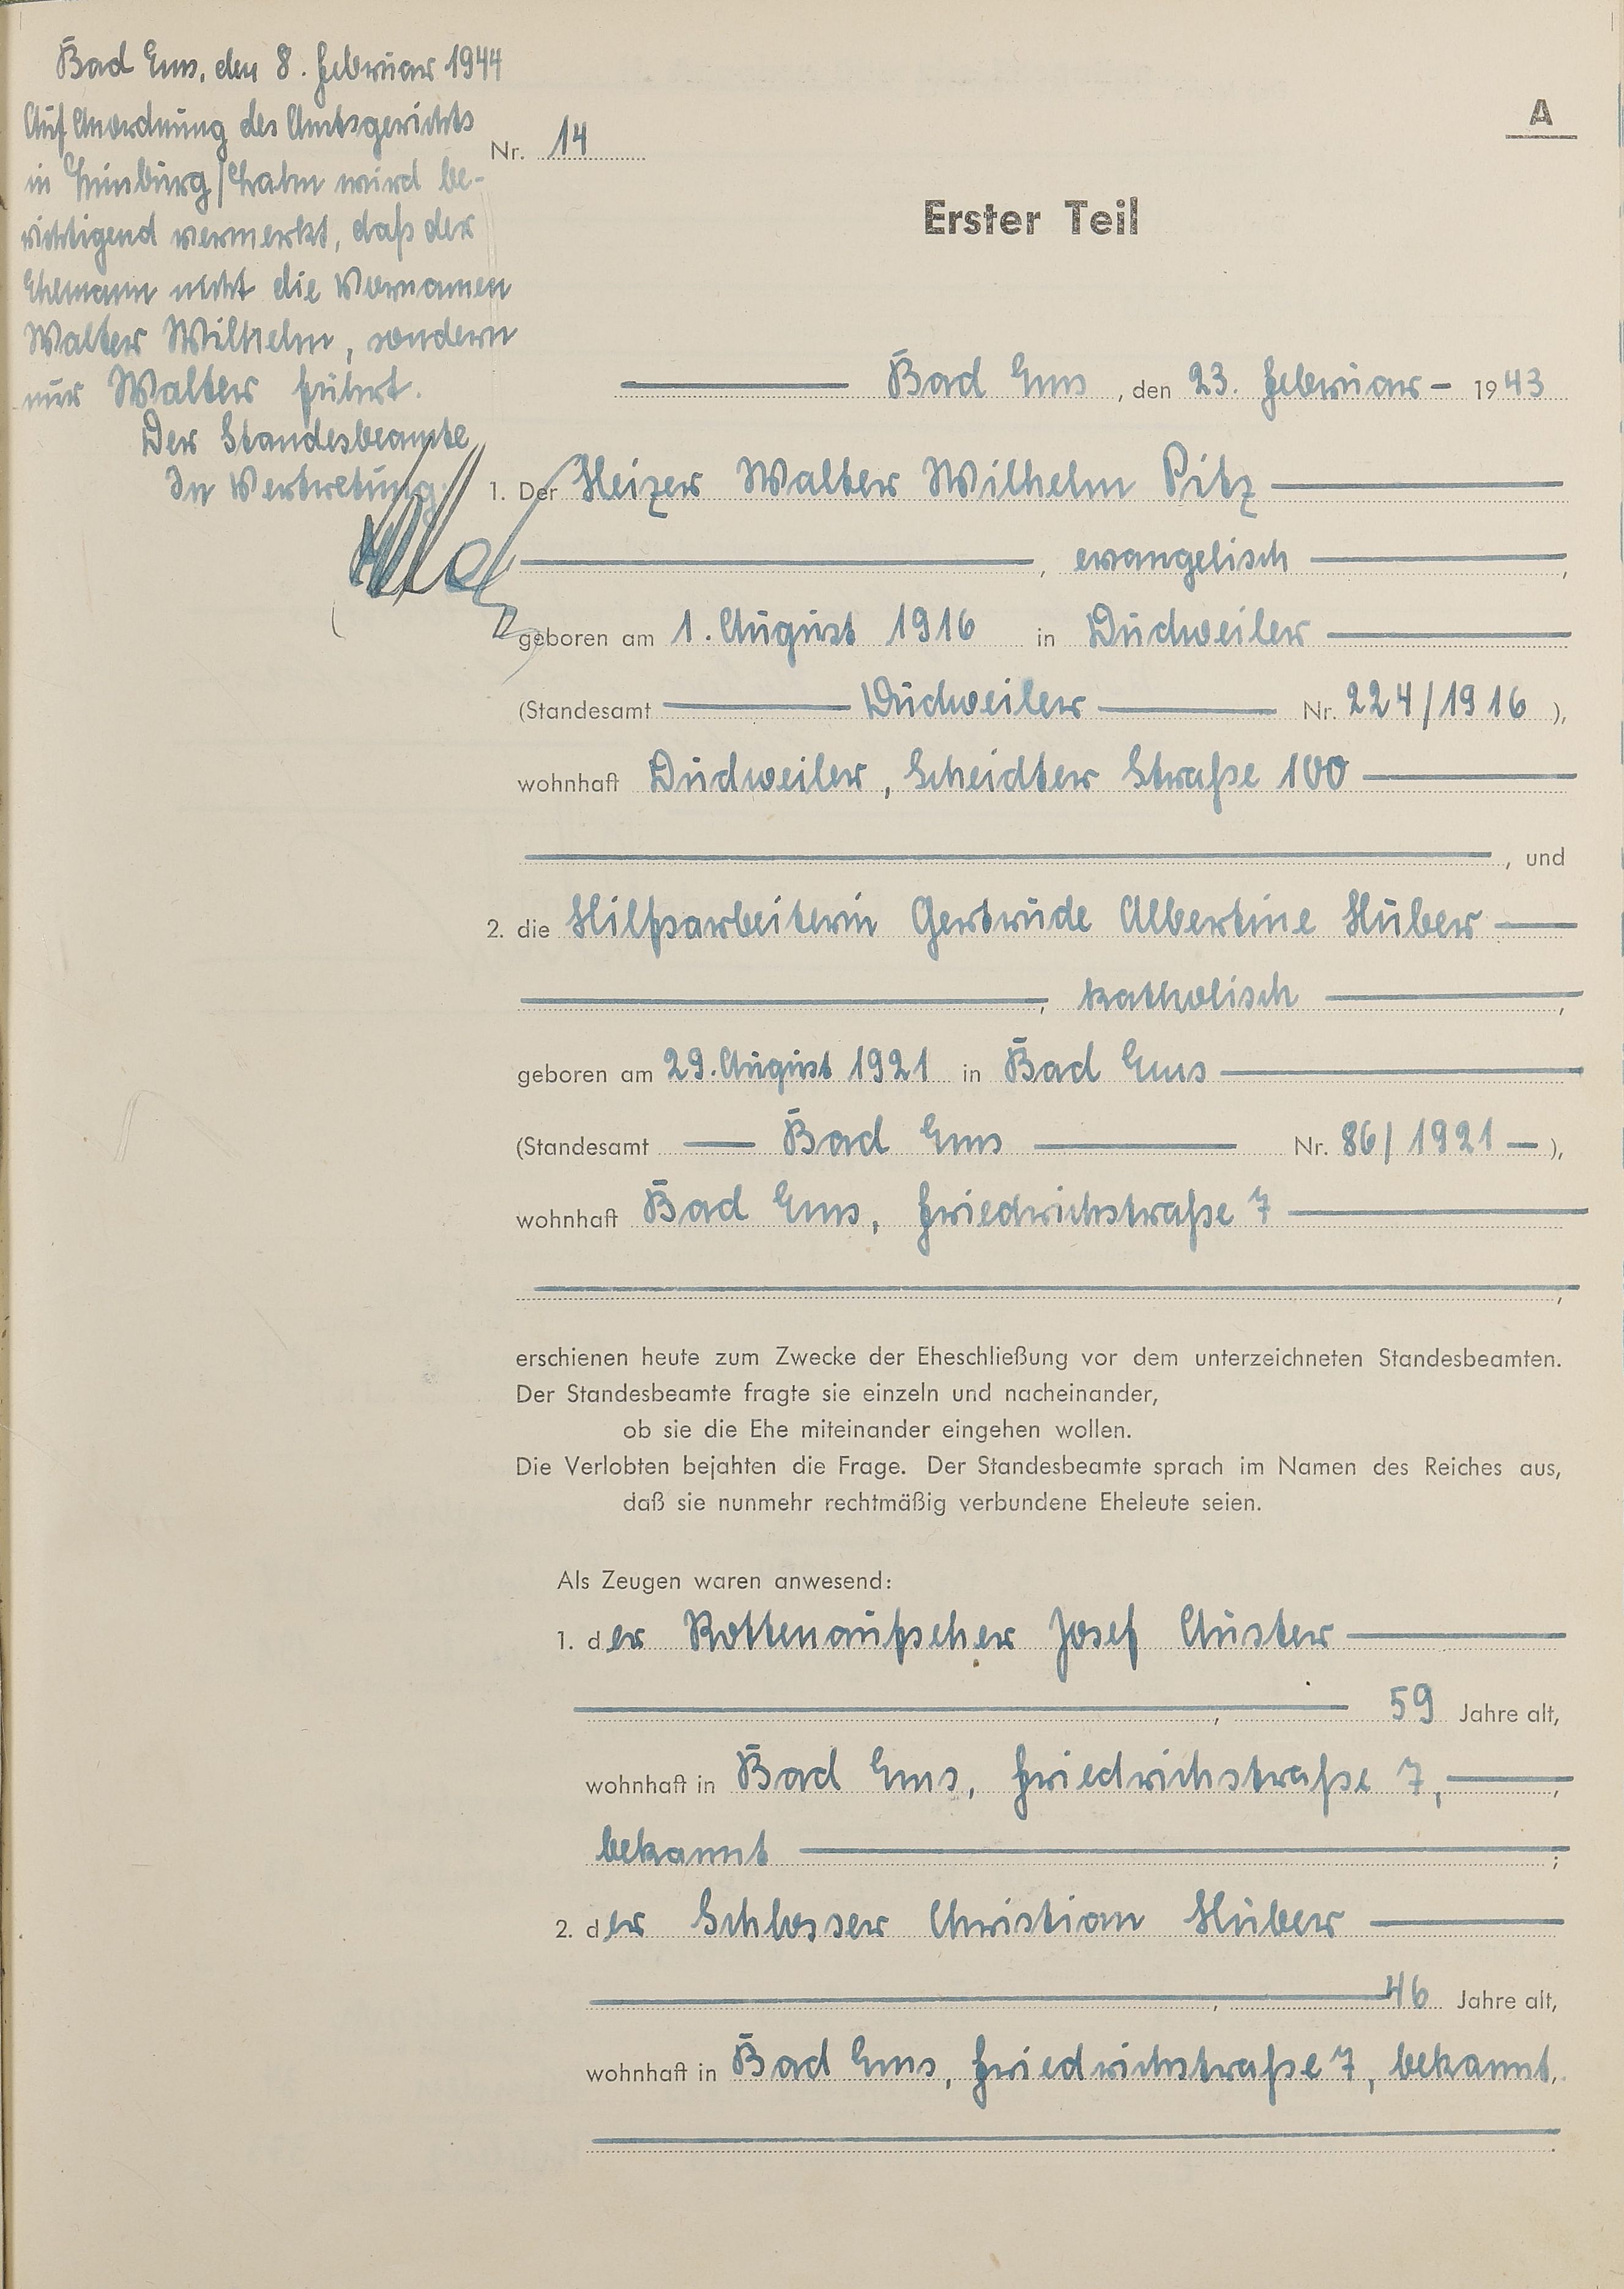 Bad Ems, den 8. Februar 1944
Auf Anordnung des Amtsgerichts
in Limburg/Lahn wird be-
richtigend vermerkt, daß der
Ehemann nicht die Vornamen
Walter Wilhelm, sondern
nur Walter führt.
Der Standesbeamte
In Vertretung:
A
Nr. 14
Erster Teil
Bad Ems, den 23. Februar 1943
1. Der Heizer Walter Wilhelm Pitz
, evangelisch,
geboren am 1. August 1916 in Dudweiler
(Standesamt Dudweiler Nr. 224/1916),
wohnhaft Dudweiler, Scheidter Straße 100
, und
2. die Hilfsarbeiterin Gertrude Albertine Huber
, katholisch,
geboren am 29. August 1921 in Bad Ems
(Standesamt Bad Ems Nr. 86/1921),
wohnhaft Bad Ems, Friedrichstraße 7
,
erschienen heute zum Zwecke der Eheschließung vor dem unterzeichneten Standesbeamten.
Der Standesbeamte fragte sie einzeln und nacheinander,
ob sie die Ehe miteinander eingehen wollen.
Die Verlobten bejahten die Frage. Der Standesbeamte sprach im Namen des Reiches aus,
daß sie nunmehr rechtmäßig verbundene Eheleute seien.
Als Zeugen waren anwesend:
1. der Rottenaufseher Josef Auster
, 59 Jahre alt,
wohnhaft in Bad Ems, Friedrichstraße 7,
bekannt ;
2. der Schlosser Christian Huber
, 46 Jahre alt,
wohnhaft in Bad Ems, Friedrichstraße 7, bekannt.